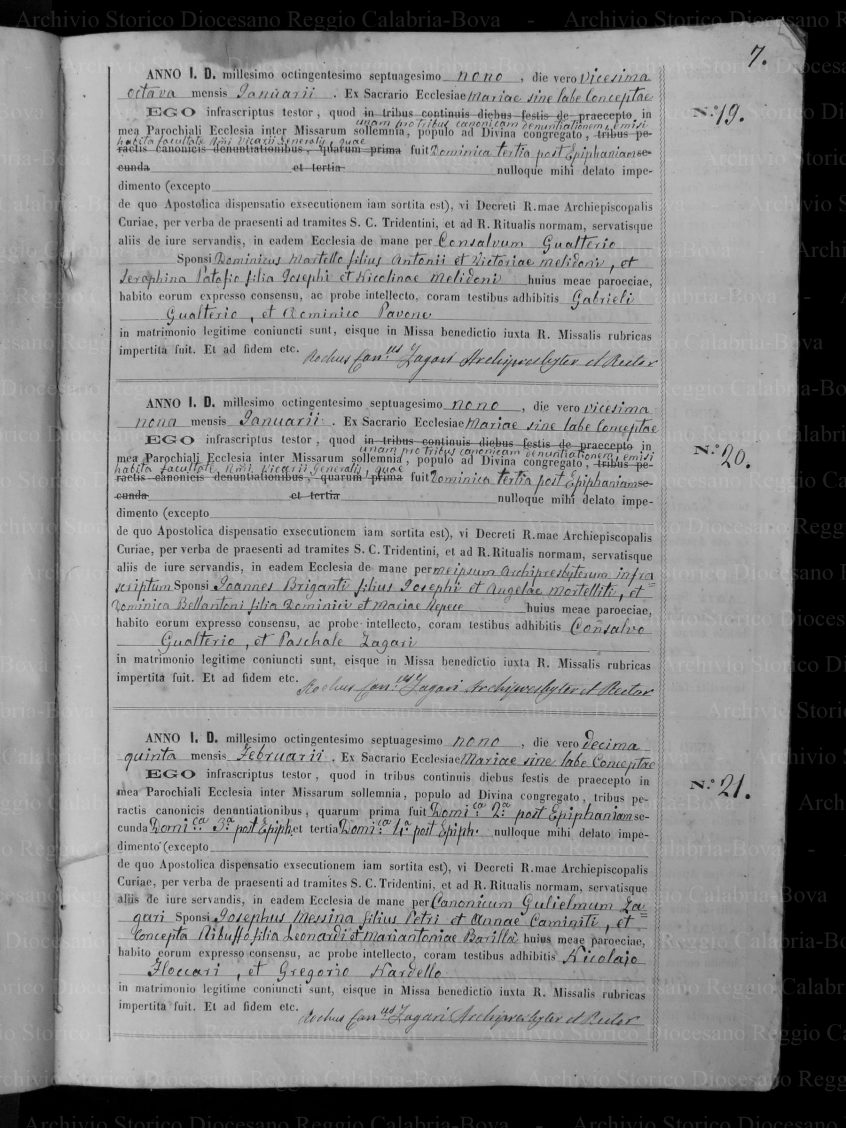 Archivio Storico Diocesano Reggio Calabria-Bova - Archivio Storico Diocesano Reggio Calabria-Bova
7.
ANNO I. D. millesimo octingentesimo septuagesimo nono, die vero vicesima
octava mensis Januarii. Ex Sacrario Ecclesiae Mariae sine labe Conceptae
N.° 19.
EGO infrascriptus testor, quod in tribus continuis diebus festis de praecepto, in
unam pro tribus canonicam denuntiationem, emisi
mea Parochiali Ecclesia inter Missarum sollemnia, populo ad Divina congregato, tribus pe-
habita facultate Rmi Vicarii Generalis, quae
ractis canonicis denuntiationibus, quarum prima fuit Dominica tertia post Epiphaniam se-
cunda et tertia nulloque mihi delato impe-
dimento (excepto
de quo Apostolica dispensatio exsecutionem iam sortita est), vi Decreti R.mae Archiepiscopalis
Curiae, per verba de praesenti ad tramites S. C. Tridentini, et ad R. Ritualis normam, servatisque
aliis de iure servandis, in eadem Ecclesia de mane per Consalvum Gualterio
Sponsi Dominicus Martello filius Antonii et Victoriae Melidoni, et
Seraphina Patafio filia Josephi et Nicolinae Melidoni huius meae paroeciae,
habito eorum expresso consensu, ac probe intellecto, coram testibus adhibitis Gabrieli
Gualterio, et Dominico Pavone
in matrimonio legitime coniuncti sunt, eisque in Missa benedictio iuxta R. Missalis rubricas
impertita fuit. Et ad fidem etc. Rochus Can.us Zagari Archipresbyter et Rector
ANNO I. D. millesimo octingentesimo septuagesimo nono, die vero vicesima
nona mensis Januarii. Ex Sacrario Ecclesiae Mariae sine labe Conceptae
N.° 20.
EGO infrascriptus testor, quod in tribus continuis diebus festis de praecepto in
unam pro tribus canonicam denuntiationem, emisi
mea Parochiali Ecclesia inter Missarum sollemnia, populo ad Divina congregato, tribus pe-
habita facultate, Rmi. Vicarii Generalis, quae
ractis canonicis denuntiationibus, quarum prima fuit Dominica tertia post Epiphaniam se-
cunda et tertia nulloque mihi delato impe-
dimento (excepto
de quo Apostolica dispensatio exsecutionem iam sortita est), vi Decreti R.mae Archiepiscopalis
Curiae, per verba de praesenti ad tramites S. C. Tridentini, et ad R. Ritualis normam, servatisque
aliis de iure servandis, in eadem Ecclesia de mane per meipsum Archipresbyterum infra
scriptum Sponsi Joannes Briganti filius Josephi et Angelae Mortelliti, et=
Dominica Bellantoni filia Dominici et Mariae Repece huius meae paroeciae,
habito eorum expresso consensu, ac probe intellecto, coram testibus adhibitis Consalvo
Gualterio, et Paschale Zagari
in matrimonio legitime coniuncti sunt, eisque in Missa benedictio iuxta R. Missalis rubricas
impertita fuit. Et ad fidem etc. Rochus Can.us Zagari Archipresbyter et Rector
ANNO I. D. millesimo octingentesimo septuagesimo nono, die vero decima
quinta mensis Februarii. Ex Sacrario Ecclesiae Mariae sine labe Conceptae
N.° 21.
EGO infrascriptus testor, quod in tribus continuis diebus festis de praecepto in
mea Parochiali Ecclesia inter Missarum sollemnia, populo ad Divina congregato, tribus pe-
ractis canonicis denuntiationibus, quarum prima fuit Domi.ca 2.a post Epiphaniam se-
cunda Domi.ca 3.a post Epiph. et tertia Domi.ca 4.a post Epiph. nulloque mihi delato impe-
dimento (excepto
de quo Apostolica dispensatio exsecutionem iam sortita est), vi Decreti R.mae Archiepiscopalis
Curiae, per verba de praesenti ad tramites S. C. Tridentini, et ad R. Ritualis normam, servatisque
aliis de iure servandis, in eadem Ecclesia de mane per Canonicum Gulielmum Za
gari Sponsi Josephus Messina filius Petri et Annae Caminiti, et=
Concepta Ribuffo filia Leonardi et Mariantoniae Barillà huius meae paroeciae,
habito eorum expresso consensu, ac probe intellecto, coram testibus adhibitis Nicolajo
Floccari, et Gregorio Nardello
in matrimonio legitime coniuncti sunt, eisque in Missa benedictio iuxta R. Missalis rubricas
impertita fuit. Et ad fidem etc. Rochus Can.us Zagari Archipresbyter et Rector